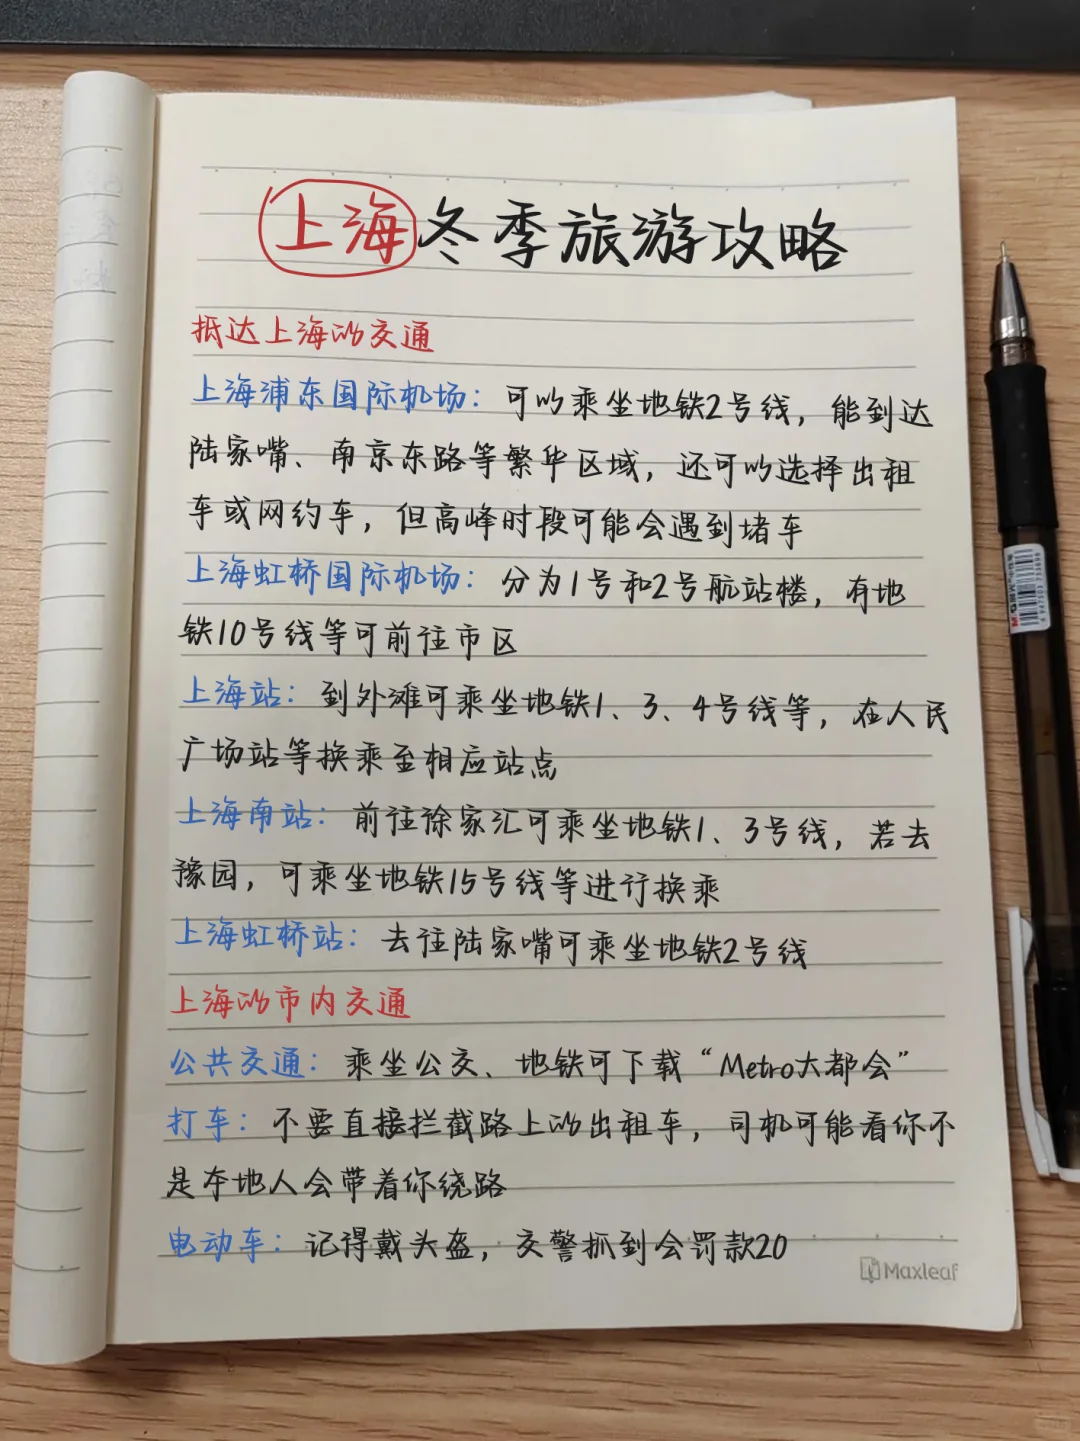 上海冬季旅游攻略
抵达上海的交通
上海浦东国际机场：可以乘坐地铁2号线，能到达
陆家嘴、南京东路等繁华区域，还可以选择出租
车或网约车，但高峰时段可能会遇到堵车
上海虹桥国际机场：分为1号和2号航站楼，有地
铁10号线等可前往市区
上海站：到外滩可乘坐地铁1、3、4号线等，在人民
广场站等换乘至相应站点
上海南站：前往徐家汇可乘坐地铁1、3号线，若去
豫园，可乘坐地铁15号线等进行换乘
上海虹桥站：去往陆家嘴可乘坐地铁2号线
上海的市内交通
公共交通：乘坐公交、地铁可下载“Metro大都会”
打车：不要直接拦截路上的出租车，司机可能看你不
是本地人会带着你绕路
电动车：记得戴头盔，交警抓到会罚款20
Maxleaf